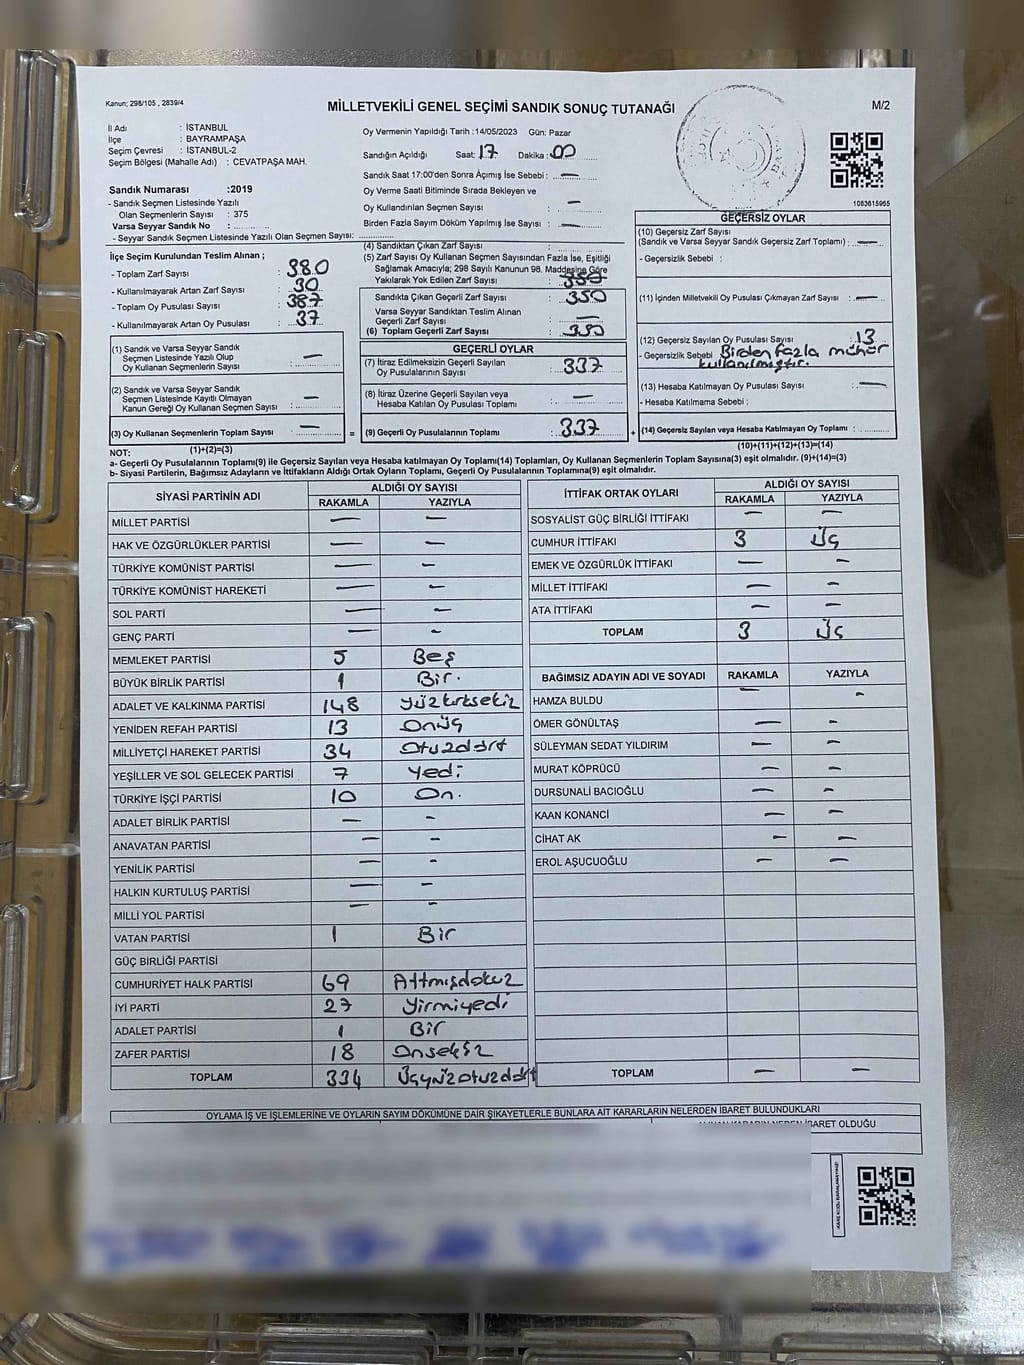 Kanun; 298/105 , 2839/4
MİLLETVEKİLİ GENEL SEÇİMİ SANDIK SONUÇ TUTANAĞI
M/2
İl Adı : İSTANBUL
İlçe : BAYRAMPAŞA
Seçim Çevresi : İSTANBUL-2
Seçim Bölgesi (Mahalle Adı) : CEVATPAŞA MAH.
Sandık Numarası :2019
- Sandık Seçmen Listesinde Yazılı
Olan Seçmenlerin Sayısı : 375
Varsa Seyyar Sandık No :
- Seyyar Sandık Seçmen Listesinde Yazılı Olan Seçmen Sayısı:
Oy Vermenin Yapıldığı Tarih :14/05/2023 Gün: Pazar
Sandığın Açıldığı Saat: 17 Dakika: 00
Sandık Saat 17:00'den Sonra Açımış İse Sebebi : —
Oy Verme Saati Bitiminde Sırada Bekleyen ve
Oy Kullandırılan Seçmen Sayısı : —
Birden Fazla Sayım Döküm Yapılmış İse Sayısı : —
1083615965
İlçe Seçim Kurulundan Teslim Alınan ;
- Toplam Zarf Sayısı : 380
- Kullanılmayarak Artan Zarf Sayısı : 30
- Toplam Oy Pusulası Sayısı : 387
- Kullanılmayarak Artan Oy Pusulası : 37
(1) Sandık ve Varsa Seyyar Sandık
Seçmen Listesinde Yazılı Olup
Oy Kullanan Seçmenlerin Sayısı : —
(2) Sandık ve Varsa Seyyar Sandık
Seçmen Listesinde Kayıtlı Olmayan
Kanun Gereği Oy Kullanan Seçmen Sayısı : —
(3) Oy Kullanan Seçmenlerin Toplam Sayısı : —
=
(4) Sandıktan Çıkan Zarf Sayısı :
(5) Zarf Sayısı Oy Kullanan Seçmen Sayısından Fazla İse, Eşitliği
Sağlamak Amacıyla; 298 Sayılı Kanunun 98. Maddesine Göre
Yakılarak Yok Edilen Zarf Sayısı :
Sandıkta Çıkan Geçerli Zarf Sayısı : 350
Varsa Seyyar Sandıktan Teslim Alınan
Geçerli Zarf Sayısı : —
(6) Toplam Geçerli Zarf Sayısı : 350
GEÇERLİ OYLAR
(7) İtiraz Edilmeksizin Geçerli Sayılan
Oy Pusulalarının Sayısı : 337
(8) İtiraz Üzerine Geçerli Sayılan veya
Hesaba Katılan Oy Pusulası Toplamı : —
(9) Geçerli Oy Pusulalarının Toplamı : 337
+
GEÇERSİZ OYLAR
(10) Geçersiz Zarf Sayısı
(Sandık ve Varsa Seyyar Sandık Geçersiz Zarf Toplamı) : —
- Geçersizlik Sebebi :
(11) İçinden Milletvekili Oy Pusulası Çıkmayan Zarf Sayısı : —
(12) Geçersiz Sayılan Oy Pusulası Sayısı : 13
- Geçersizlik Sebebi : Birden fazla mühür
kullanılmıştır.
(13) Hesaba Katılmayan Oy Pusulası Sayısı : —
- Hesaba Katılmama Sebebi ;
(14) Geçersiz Sayılan veya Hesaba Katılmayan Oy Toplamı :
NOT: (1)+(2)=(3)
(10)+(11)+(12)+(13)=(14)
a- Geçerli Oy Pusulalarının Toplamı(9) ile Geçersiz Sayılan veya Hesaba Katılmayan Oy Toplamı(14) Toplamları, Oy Kullanan Seçmenlerin Toplam Sayısına(3) eşit olmalıdır. (9)+(14)=(3)
b- Siyasi Partilerin, Bağımsız Adayların ve İttifakların Aldığı Ortak Oyların Toplamı, Geçerli Oy Pusulalarının Toplamına(9) eşit olmalıdır.
SİYASİ PARTİNİN ADI ALDIĞI OY SAYISI
RAKAMLA YAZIYLA
MİLLET PARTİSİ — —
HAK VE ÖZGÜRLÜKLER PARTİSİ — —
TÜRKİYE KOMÜNİST PARTİSİ — —
TÜRKİYE KOMÜNİST HAREKETİ — —
SOL PARTİ — —
GENÇ PARTİ — —
MEMLEKET PARTİSİ 5 Beş
BÜYÜK BİRLİK PARTİSİ 1 Bir.
ADALET VE KALKINMA PARTİSİ 148 Yüzkırksekiz
YENİDEN REFAH PARTİSİ 13 Onüç
MİLLİYETÇİ HAREKET PARTİSİ 34 Otuzdört
YEŞİLLER VE SOL GELECEK PARTİSİ 7 Yedi
TÜRKİYE İŞÇİ PARTİSİ 10 On.
ADALET BİRLİK PARTİSİ — —
ANAVATAN PARTİSİ — —
YENİLİK PARTİSİ — —
HALKIN KURTULUŞ PARTİSİ — —
MİLLİ YOL PARTİSİ — —
VATAN PARTİSİ 1 Bir
GÜÇ BİRLİĞİ PARTİSİ
CUMHURİYET HALK PARTİSİ 69 Altmışdokuz
İYİ PARTİ 27 Yirmiyedi
ADALET PARTİSİ 1 Bir
ZAFER PARTİSİ 18 Onsekiz
TOPLAM 334 Üçyüzotuzdört
İTTİFAK ORTAK OYLARI ALDIĞI OY SAYISI
RAKAMLA YAZIYLA
SOSYALİST GÜÇ BİRLİĞİ İTTİFAKI — —
CUMHUR İTTİFAKI 3 Üç
EMEK VE ÖZGÜRLÜK İTTİFAKI — —
MİLLET İTTİFAKI — —
ATA İTTİFAKI — —
TOPLAM 3 Üç
BAĞIMSIZ ADAYIN ADI VE SOYADI RAKAMLA YAZIYLA
HAMZA BULDU — —
ÖMER GÖNÜLTAŞ — —
SÜLEYMAN SEDAT YILDIRIM — —
MURAT KÖPRÜCÜ — —
DURSUNALİ BACIOĞLU — —
KAAN KONANCİ — —
CİHAT AK — —
EROL AŞUCUOĞLU — —
TOPLAM — —
OYLAMA İŞ VE İŞLEMLERİNE VE OYLARIN SAYIM DÖKÜMÜNE DAİR ŞİKAYETLERLE BUNLARA AİT KARARLARIN NELERDEN İBARET BULUNDUKLARI
İBARET OLDUĞU